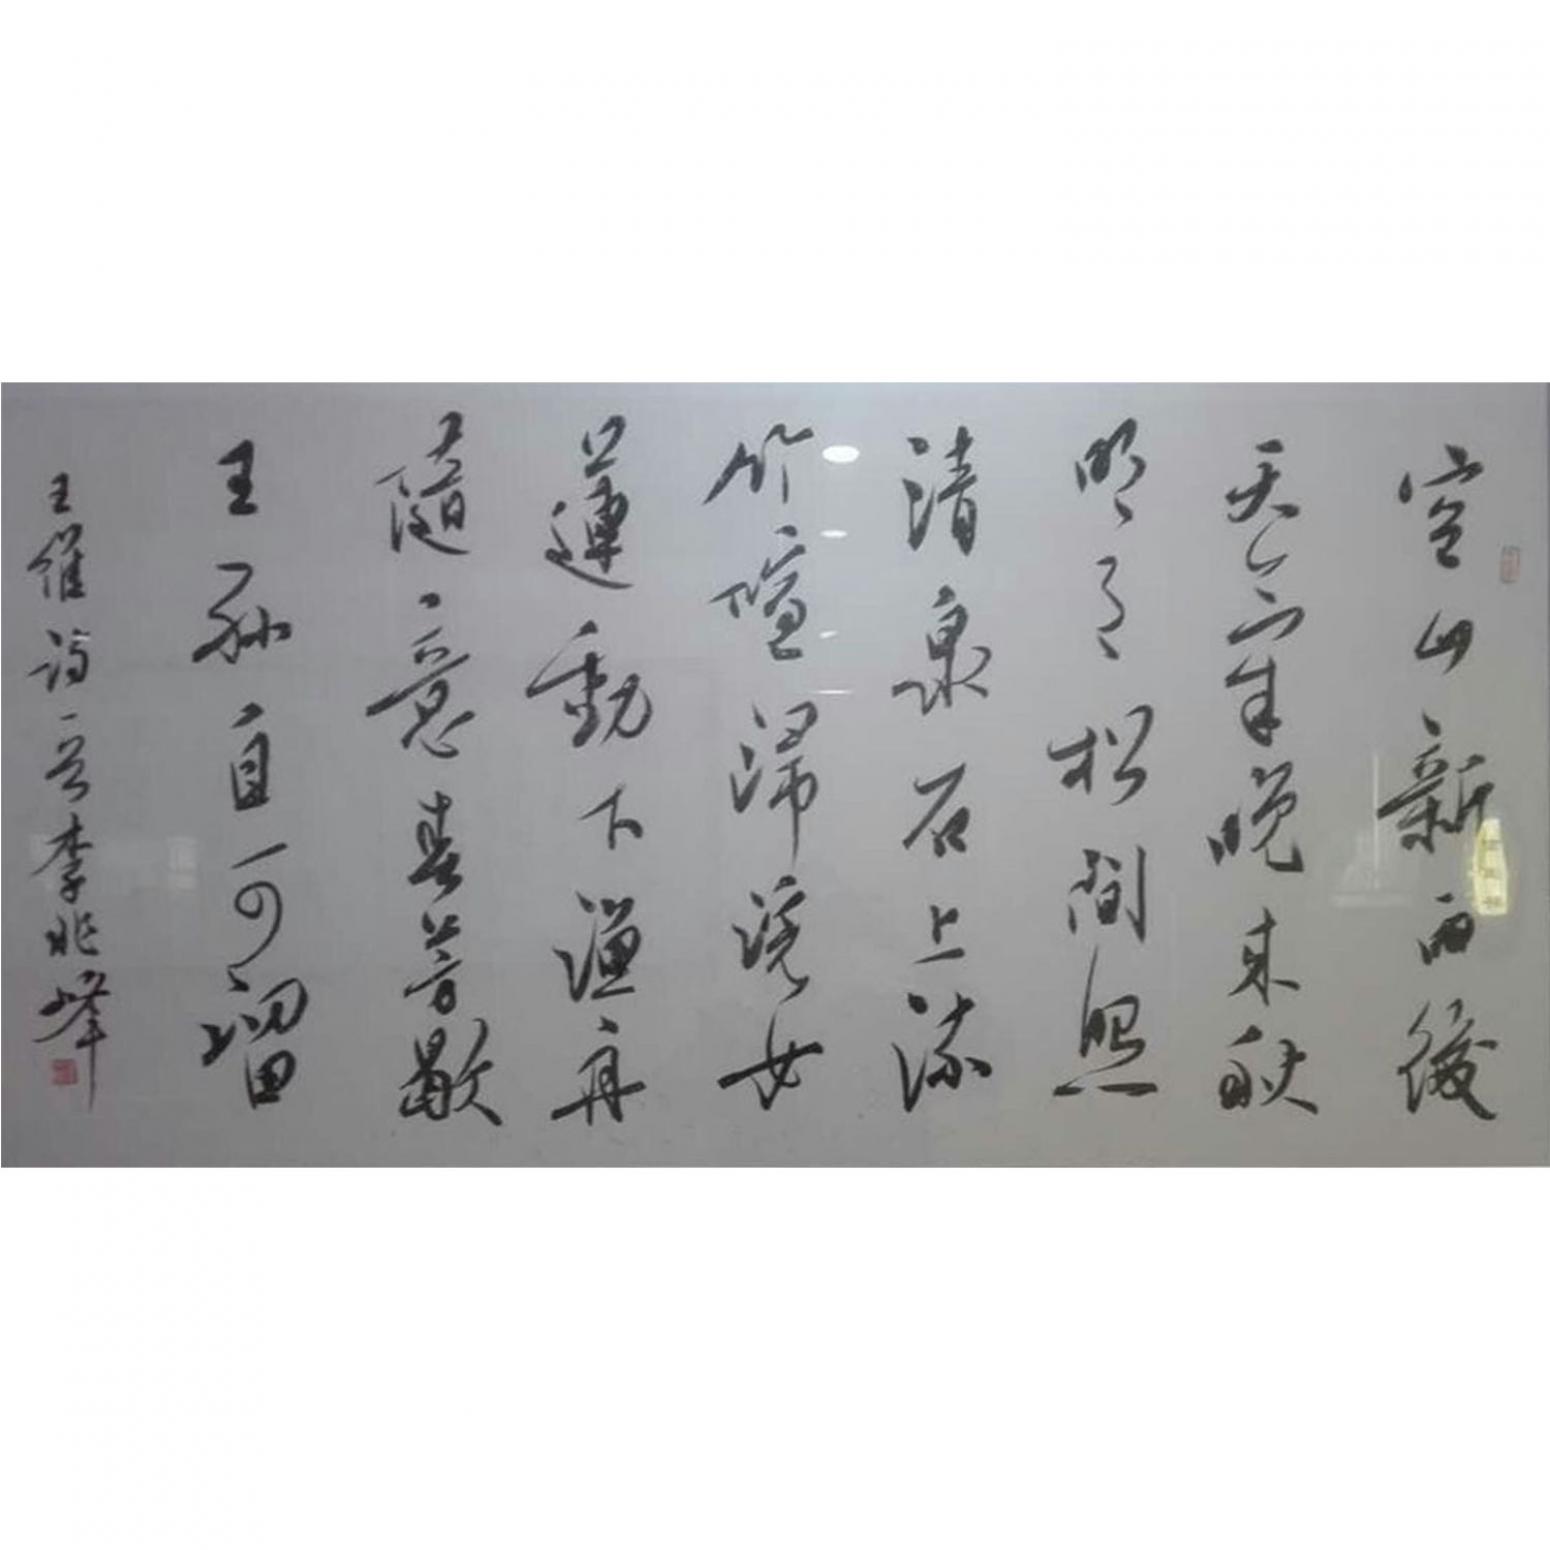 空山新雨後
天氣晚來秋
明月松間照
清泉石上流
竹喧歸浣女
蓮動下漁舟
隨意春芳歇
王孫自可留
王維詩一首 李兆峰